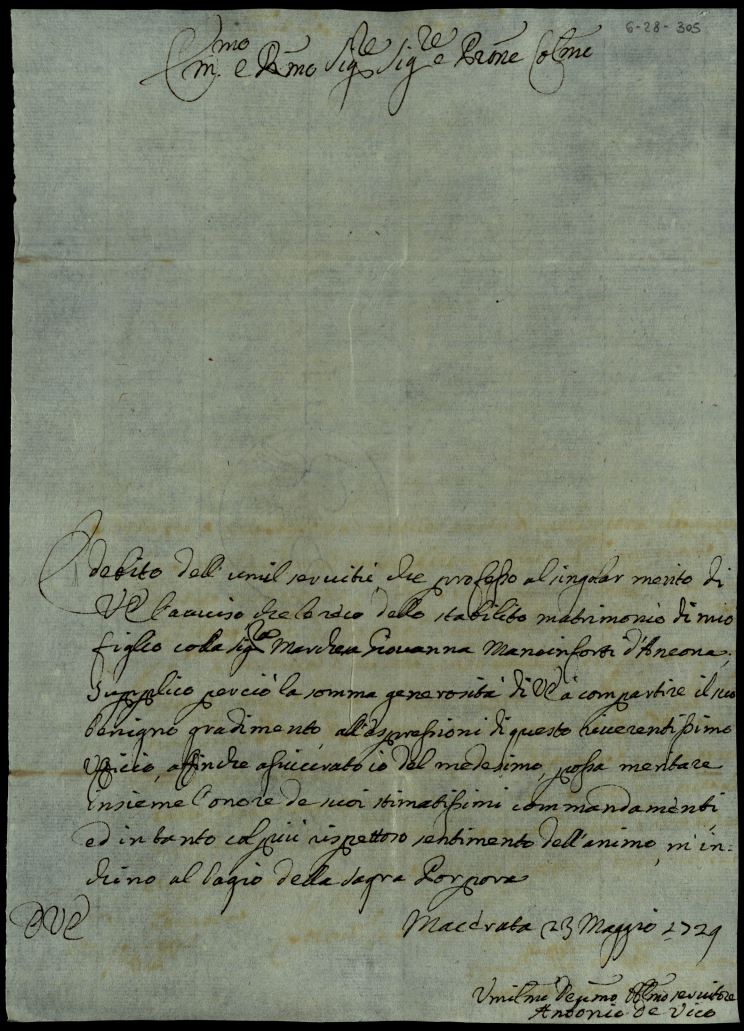 6-28-305
Em.mo e R̃mo Sig.re Sig.re e Prõne Col̃mo
È debito dell'umil servitù, che professo al singolar merito di
VE l'avviso che le reco dello stabilito matrimonio di mio
figlio colla Sig.ra Marchesa Giovanna Mancinforti d'Ancona.
Supplico perciò la somma generosità di VE à compartire il suo
benigno gradimento all'espressioni di questo riverentissimo
Officio, affinche assicurato io del medesimo, possa meritare
insieme l'onore de suoi stimatissimi commandamenti,
ed in tanto col più rispettoso sentimento dell'animo, m'in-
chino al bagio della Sagra Porpora
DVE
Macerata 23 Maggio 1729
Umil̃mo Devmo Obl̃mo servitore
Antonio de Vico